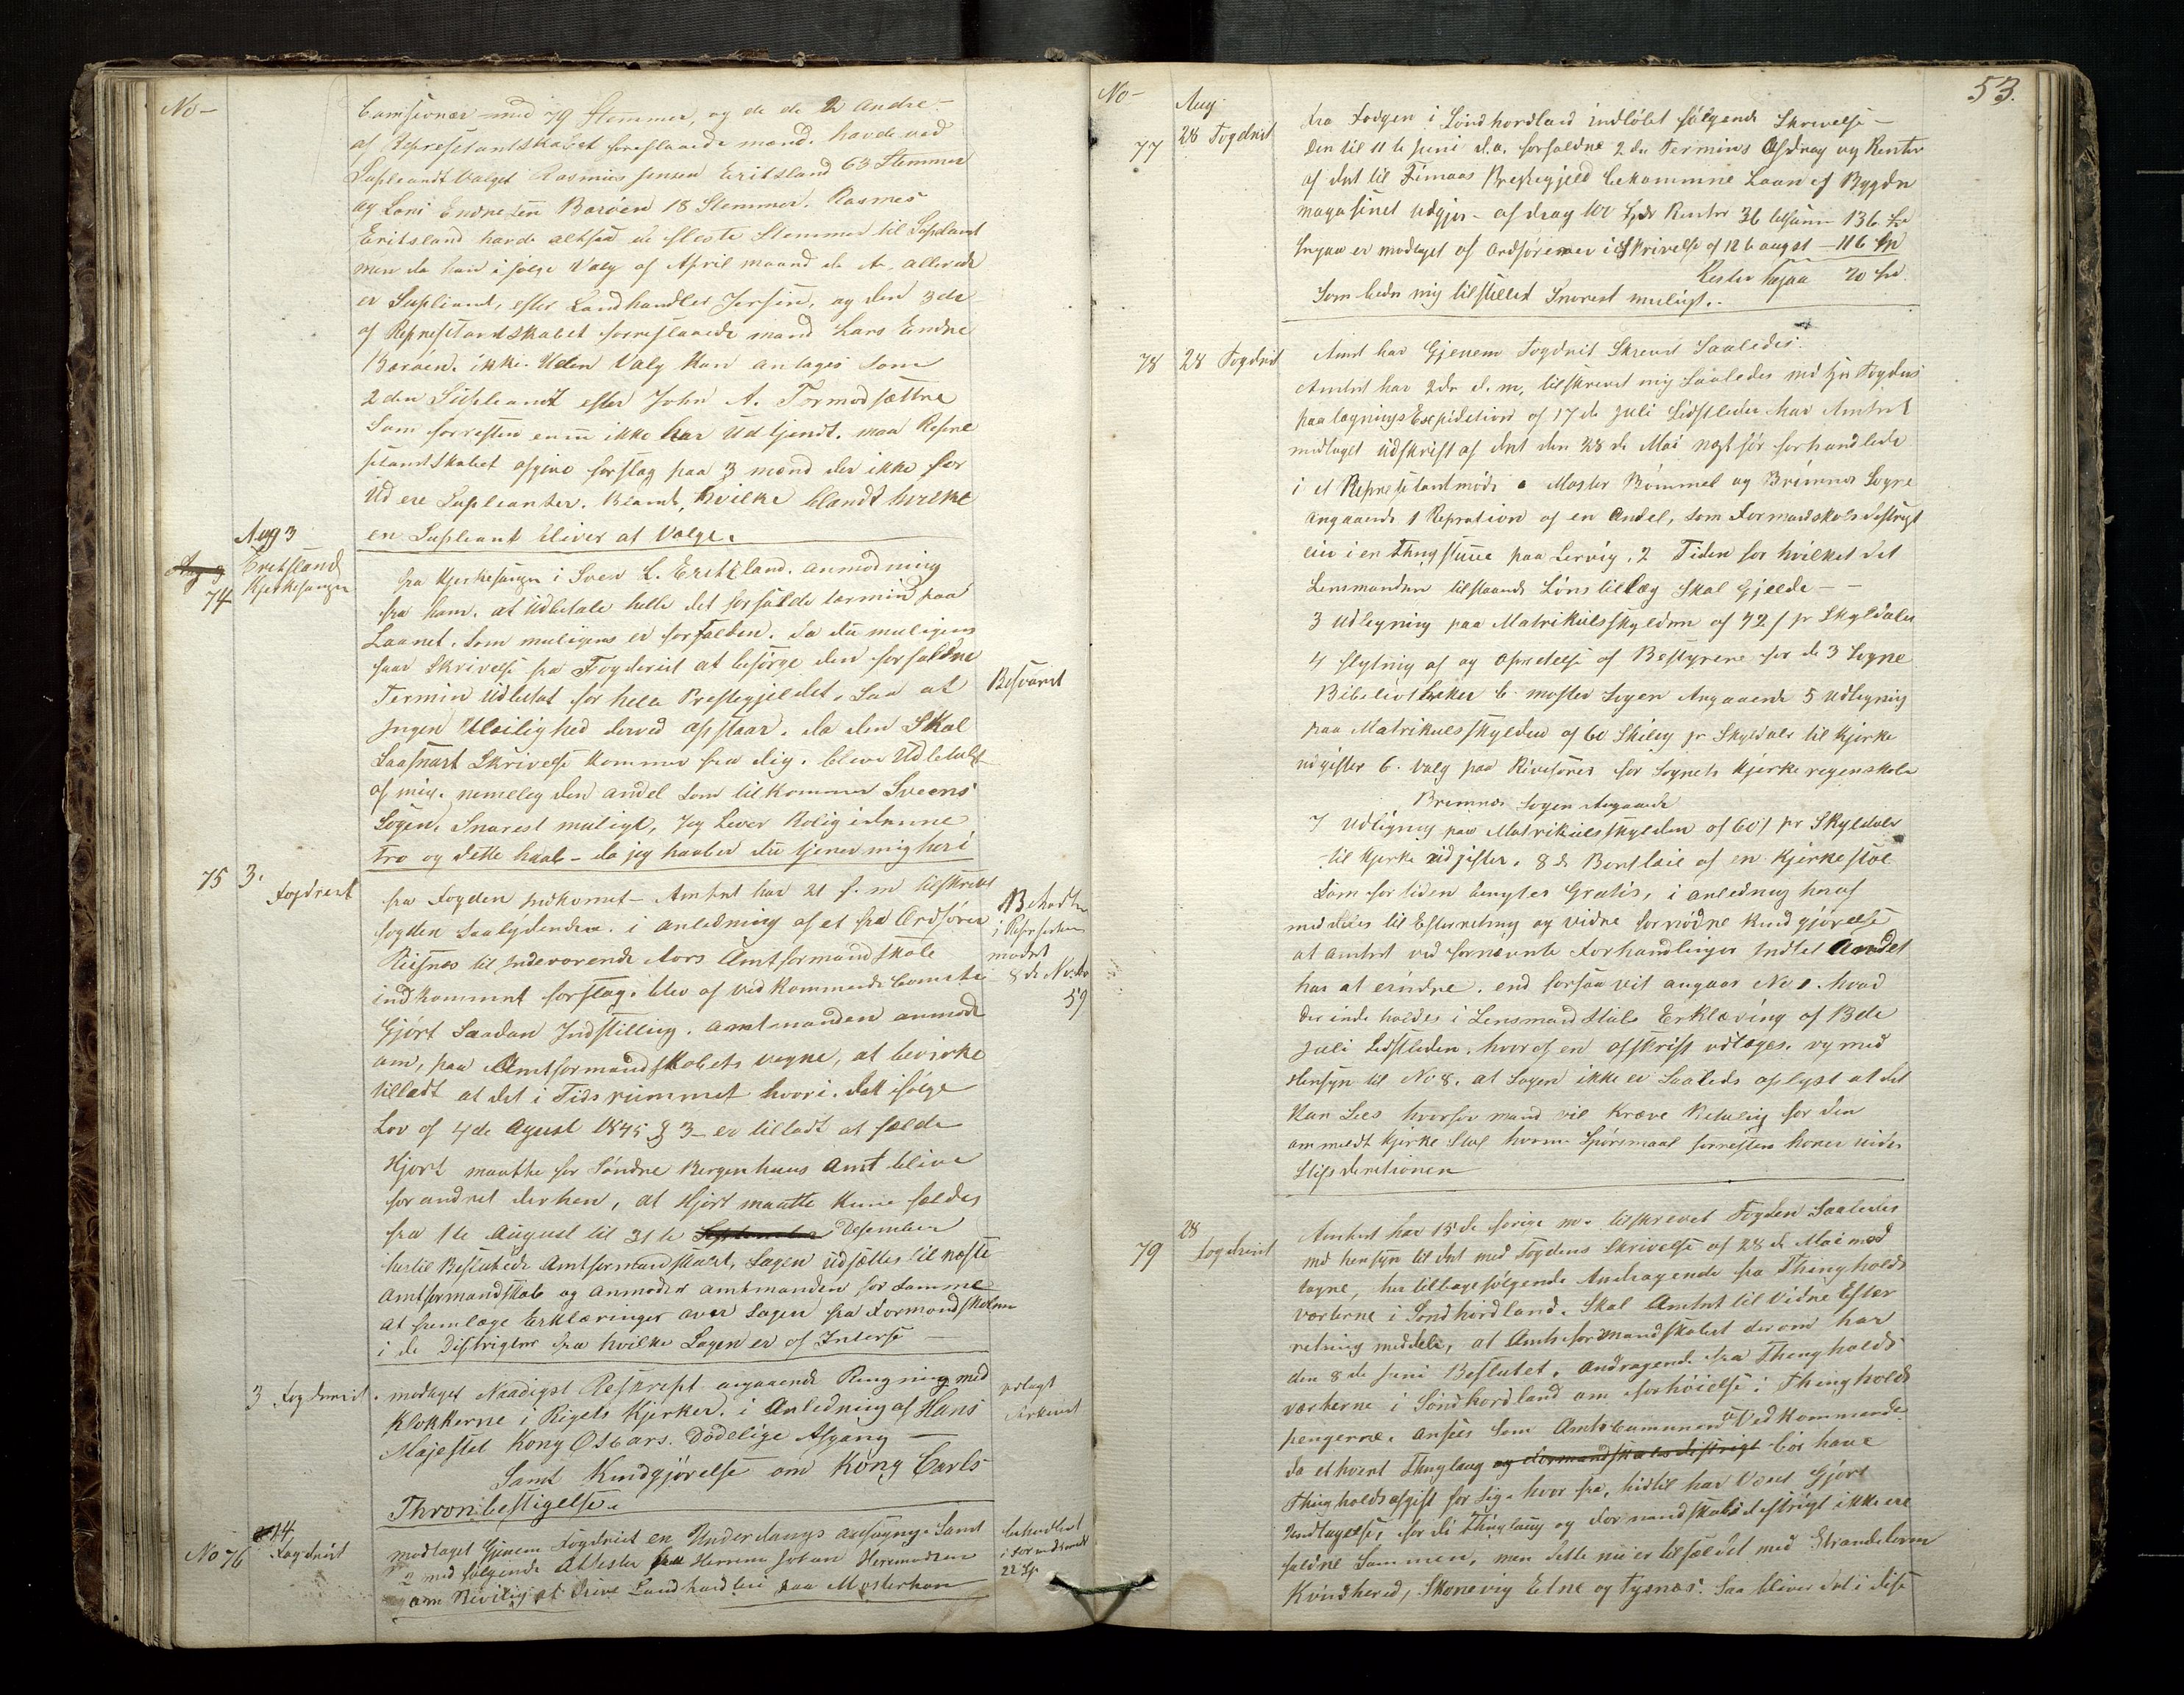 No-
Comsionær med 79 Stemmer, og de de 2 Andre-
af Represetantskabet foreslaaede mænd. havde ved
Supleandt valget Rasmus Jensen Eritsland 63 Stemmer
og Endresen Barøen 18 Stemmer. Rasmus
Eritsland havde altsaa de fleste Stemmer til Supleant
men da han i følge Valg af April maaned d. A. allerede
er Supleant, efter Landhandler Jersin, og den 3de
af Represetandskabet foreslaaede mand Lars Endre
Barøen. ikke Uden Valg Kan antages som
2den Supleandt efter John A. Tormodsættre
Som forresten enn ikke har Udtjendt. maa Repre
setandskabet afgive forslag paa 3 mænd der ikke før
Ud ere Supleanter. Blandt, hvilke blandt hvilke
en Supleant bliver at Valge.
Aug 3
Aug 3 Eritsland
74 Kjerkesanger
fra Kjerkesanger i Sveen L. Eritzland. anmodning
fra ham. at Udbetale helle det forfaldne termin paa
Laanet. som muligens er forfalden. da du muligens
faar Skrivelse fra Fogderiet at besørge den forfaldne
Termin Udbetat for hele Prestegjeldet. Saa at
Ingen Uleilighed derved opstaar. da den Skal
Saasnart Skrivelse Kommer fra dig. blive Udbetalt
af mig. nemelig den andel som tilkommer Sveens
Sogen. Snarest muligt, Jeg Lever Rolig i denne
tro og dette haab- da jeg haaber du tjener mig heri
Besvaret
75 3. Fogdriet
fra Fogden Indkomet- Amtet har 21 f. m tilskrevet
fogden Saalydende. i anledning af et fra Ordfører
Riisnes til Indeværende Aars Amtformandskab
indkommet forslag. blev af vedkommende Comite
Gjort Saadan Indstilling. amtmanden anmode
om, paa Amtformandskabets vegne, at bevirke
tilladt at det i Tidsrummet hvori. det ifølge
Lov af 4de Agust 1845 § 3- er tilladt at fælde
Hjort maatte for Søndre Bergenhuus Amt blive
forandret derhen, at Hjort maatte kune fældes
fra 1te August til 31te September Desember
hertil Besluttede Amtformandskabet, Sagen udsættes til næste
Amtformandskab og anmoder amtmanden for samme
at fremlæge Erklæringer over Sagen fra Formandskaberne
i de Distrigter fra hvilke Sagen er af Interse
Behadlet
i Representan
mødet
8de Novbr
59
3 Fogderiet. modaget Naadigst Reskript angaaende Ringning med
Klokkerne i Rigets Kjerker. i Anledning af Hans
Majestet Kong Oscars. Dødelige Afgang
Samt Kundgjørelse om Kong Carls
Thronbestigelse.
udlagt
14
No 76 Fogdriet
modtaget Gjenem Fogdriet en Underdanigs ansøgning. Samt
2 medfølgende Attester fra Herrem Johan Hermodsen
om Bevilig at Drive Landhandleri paa Mosterhan
behandlet
i formdsmødet
22 Sp
53.
No-
Aug
77 28 Fogdriet
fra Fodgen i Søndhordland indløbet følgende Skrivelse-
Den til 11te Juni d.a. forfaldne 2den Termins Afdrag og Renter
af det til Finnaas Prestegjeld bekomme Laan af Bygde
magasinet udgjør- afdrag 100 Spdr Renter 36 tilsam 136 Sp
hvpaa er modtaget af Ordføreren i Skrivelse af 12te august -116 Sp
Rester hpaa 20 Sp
Som bedes mig tilstillet Snarest muligt.
78 28 Fogdriet
Amtet har Gjenem Fogdriet Skrevet Saaledes.
Amtet har 2den d. m, tilskrevet mig Saaledes med hr. Fogdens
paategnings Expidition af 17de Juli sidstleden har Amtet
modtaget Udskrift af det den 28de Mai næst før forhandlede
i et Represetantmøde a Moster Bømmel og Brimnes Sogne
Angaaende 1 Repration af en Andel, som Formandskabsdistrigt
eier i en Thingstuue paa Lervig, 2 Tiden for hvilket det
Lensmanden tilstaaende Lønstillæg Skal Gjelde-
3 Udlegning paa Matrikulsskylden af 72 / pr Skyldaler
4 flytning af og Oprettelse af Bestyrene for de 3 Sogne
Bibeliotheker b. moster Sogen Angaaende 5 Udlegning
paa Matrikulsskylden af 60 Skilig pr Skyldaler til Kjerke
udgifter 6. Valg paa Revisorer for Sognets Kjerkeregenskaber
Brimnes Sogen Angaaende
7 Udligning paa Matrikulsskylden af 60 / pr Skyldaler
til Kjerke udgifter. 8de Bortleie af en Kjerkestol
Som for tiden benyttes Gratis, i anledning heraf
meddeles til Esterretning og vidre fornødne Kundgjørelse
at amtet ved fornævnte Forhandlinger Indtet Andet
har at erindre. end forsaavit angaar No 1. hvad
der inde holdes i Lensmandstols Erklæring af 13de
Juli Sidstleden, hvoraf en afskrift vdtages. og med
Hensyn til No 8. at Sagen ikke er Saaleds oplyst at det
Kan Sees hvorfor mand vil Kræve Betaling for den
ommeldte Kjerke Stol hvorom Spørsmaal forresten hører under
Stifsdiretionen
79 28 Fogderiet
Amtet har 15de forige m. tilskrevet Fogden Saaledes
med hensyn til det med Fogdens Skrivelse af 28de Mai mod
tagne, her tilbagefølgende Andragende fra Thinghold
værterne i Søndhordland. Skal Amtet til Vidre Efter
retning meddele, at Amtsformandskabet derom har
den 8de Juni Beslutet, Andragende fra Thingholds
værterne i Søndhordland om forhøielse i Thingholds
pengerne. ansees som Amtscommunen Vedkommende
da et hvert Thinglaug og Formandskabsdistrigt bør have
Thingholdsafgift for Sig. hvor fra, hidtil har Været Gjort
Undtagelse, for di Thinglaug og Formandskabsdistrigt ikke ere
faldne Sammen, men dette nu er tilfældet med Strandebarm
Kvindhered, Skonevig Etne og Tysnæs. Saa bliver det i disse